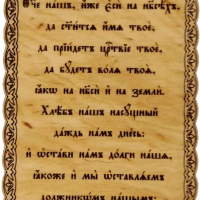 Ѻ҃че нашъ, иже є҆сѝ на нб҃сѣхъ,
да ст҃и́тсѧ и҆́мѧ твоѐ,
да прїи́детъ црⷭ҇твїе твоѐ,
да бꙋ́детъ во́лѧ твоѧ̀,
ꙗ҆́кѡ на нб҃сѝ и҆ на землѝ.
Хлѣ́бъ на́шъ насꙋ́щный
да́ждь на́мъ дне́сь:
и҆ ѡ҆ста́ви на́мъ до́лги на́шѧ,
ꙗ҆́коже и҆ мы̀ ѡ҆ставлѧ́емъ
должникѡ́мъ на́шымъ: